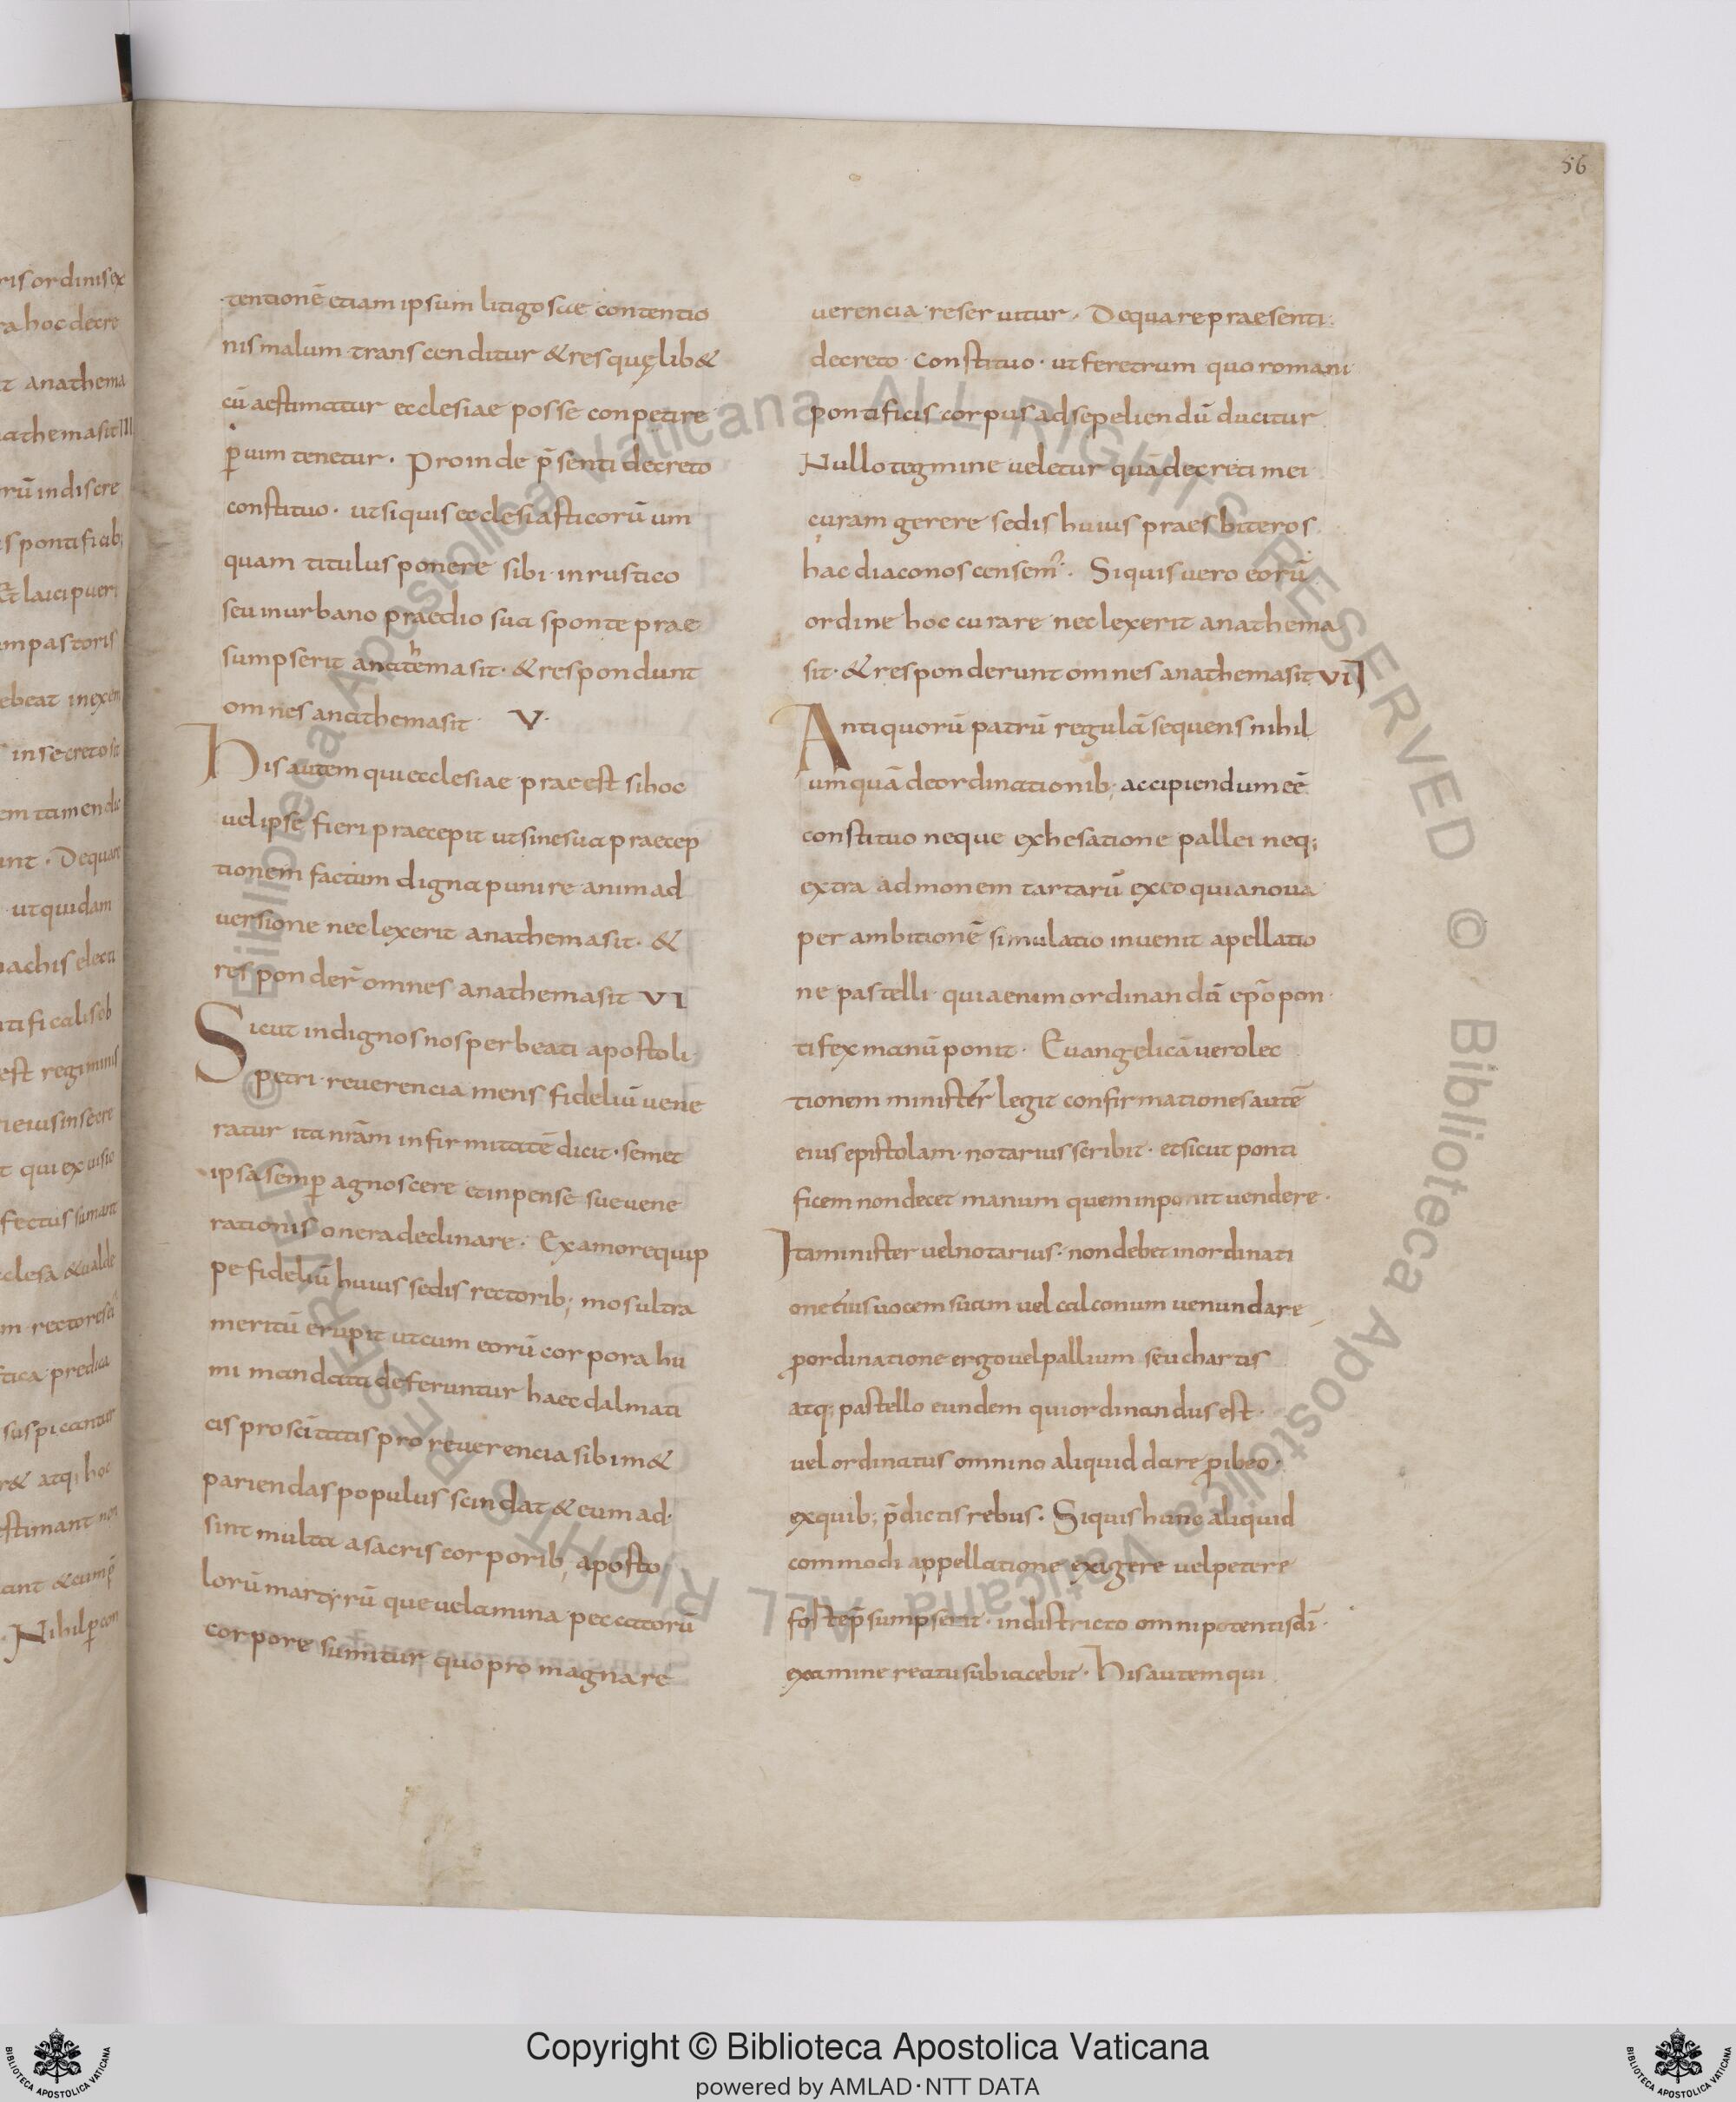 56
tentionē etiam ipsum litigosae contentio
nis malum transcenditur & res quęlib&
cū aestimatur ecclesiae posse conpetire
p̄ uim tenetur. Proinde p̄senti decreto
constituo. ut siquis ecclesiasticorū um
quam titulus ponere sibi in rustico
seu in urbano praedio sua sponte prae
sumpserit anathema sit. & respondunt
omnes anathema sit V.
His autem qui ecclesiae praeest si hoc
uel ipse fieri praecepit ut sine sua praecep
tionem factum digna punire animad
uersione neclexerit anathema sit. &
responder̄ omnes anathema sit VI
Sicut indignos nos per beati apostoli
petri reuerencia mens fideliū uene
ratur ita nr̄am infirmitatē dicit. semet
ipsa semp̄ agnoscere et inpense sue uene
rationis onera declinare. Ex amore quip
pe fideliū huius sedis rectorib; mos ultra
meritū erupit ut cum eorū corpora hu
mi mandata deferuntur haec dalmati
cis pro scītatis pro reuerencia sibim&
pariendas populus scindat & cum ad
sint multa a sacris corporib; aposto
lorū martyrū que uelamina peccatorū
corpore sumitur quo pro magna re
uerencia reseruitur. De qua re praesenti
decreto constituo. ut feretrum quo romani
pontificis corpus ad sepeliendū ducitur
Nullo tegmine veletur quā decreti mei
curam gerere sedis huius praesbiteros
hac diaconos censem̄. Siquis uero eorū
ordine hoc curare neclexerit anathema
sit. & responderunt omnes anathema sit VII
Antiquorū patrū regulā sequens nihil
umquā de ordinationib; accipiendum eē
constituo neque ex hesatione pallei neq;
extra admonem tartarū ex eo quia noua
per ambitionē simulatio inuenit apellatio
ne pastelli. quia enim ordinandū ep̄o pon
tifex manū ponit. Euangelicā uero lec
tionem minister̄ legit confirmationes autē
eius epistolam notarius scribit. et sicut ponti
ficem non decet manum quem inponit uendere.
Ita minister uel notarius. non debet in ordinati
one eius uocem suam uel calconum uenundare
p̄ ordinatione ergo uel pallium seu chartis
atq; pastello eundem qui ordinandus est.
uel ordinatus omnino aliquid dare p̄ibeo.
ex quib; p̄dictis rebus. Siquis hunc aliquid
commodi appellatione exigere uel petere
fostep̄sumpserit. in districto omnipotentis dī
examine reatu subiacebit. His autem qui
Copyright © Biblioteca Apostolica Vaticana
powered by AMLAD·NTT DATA